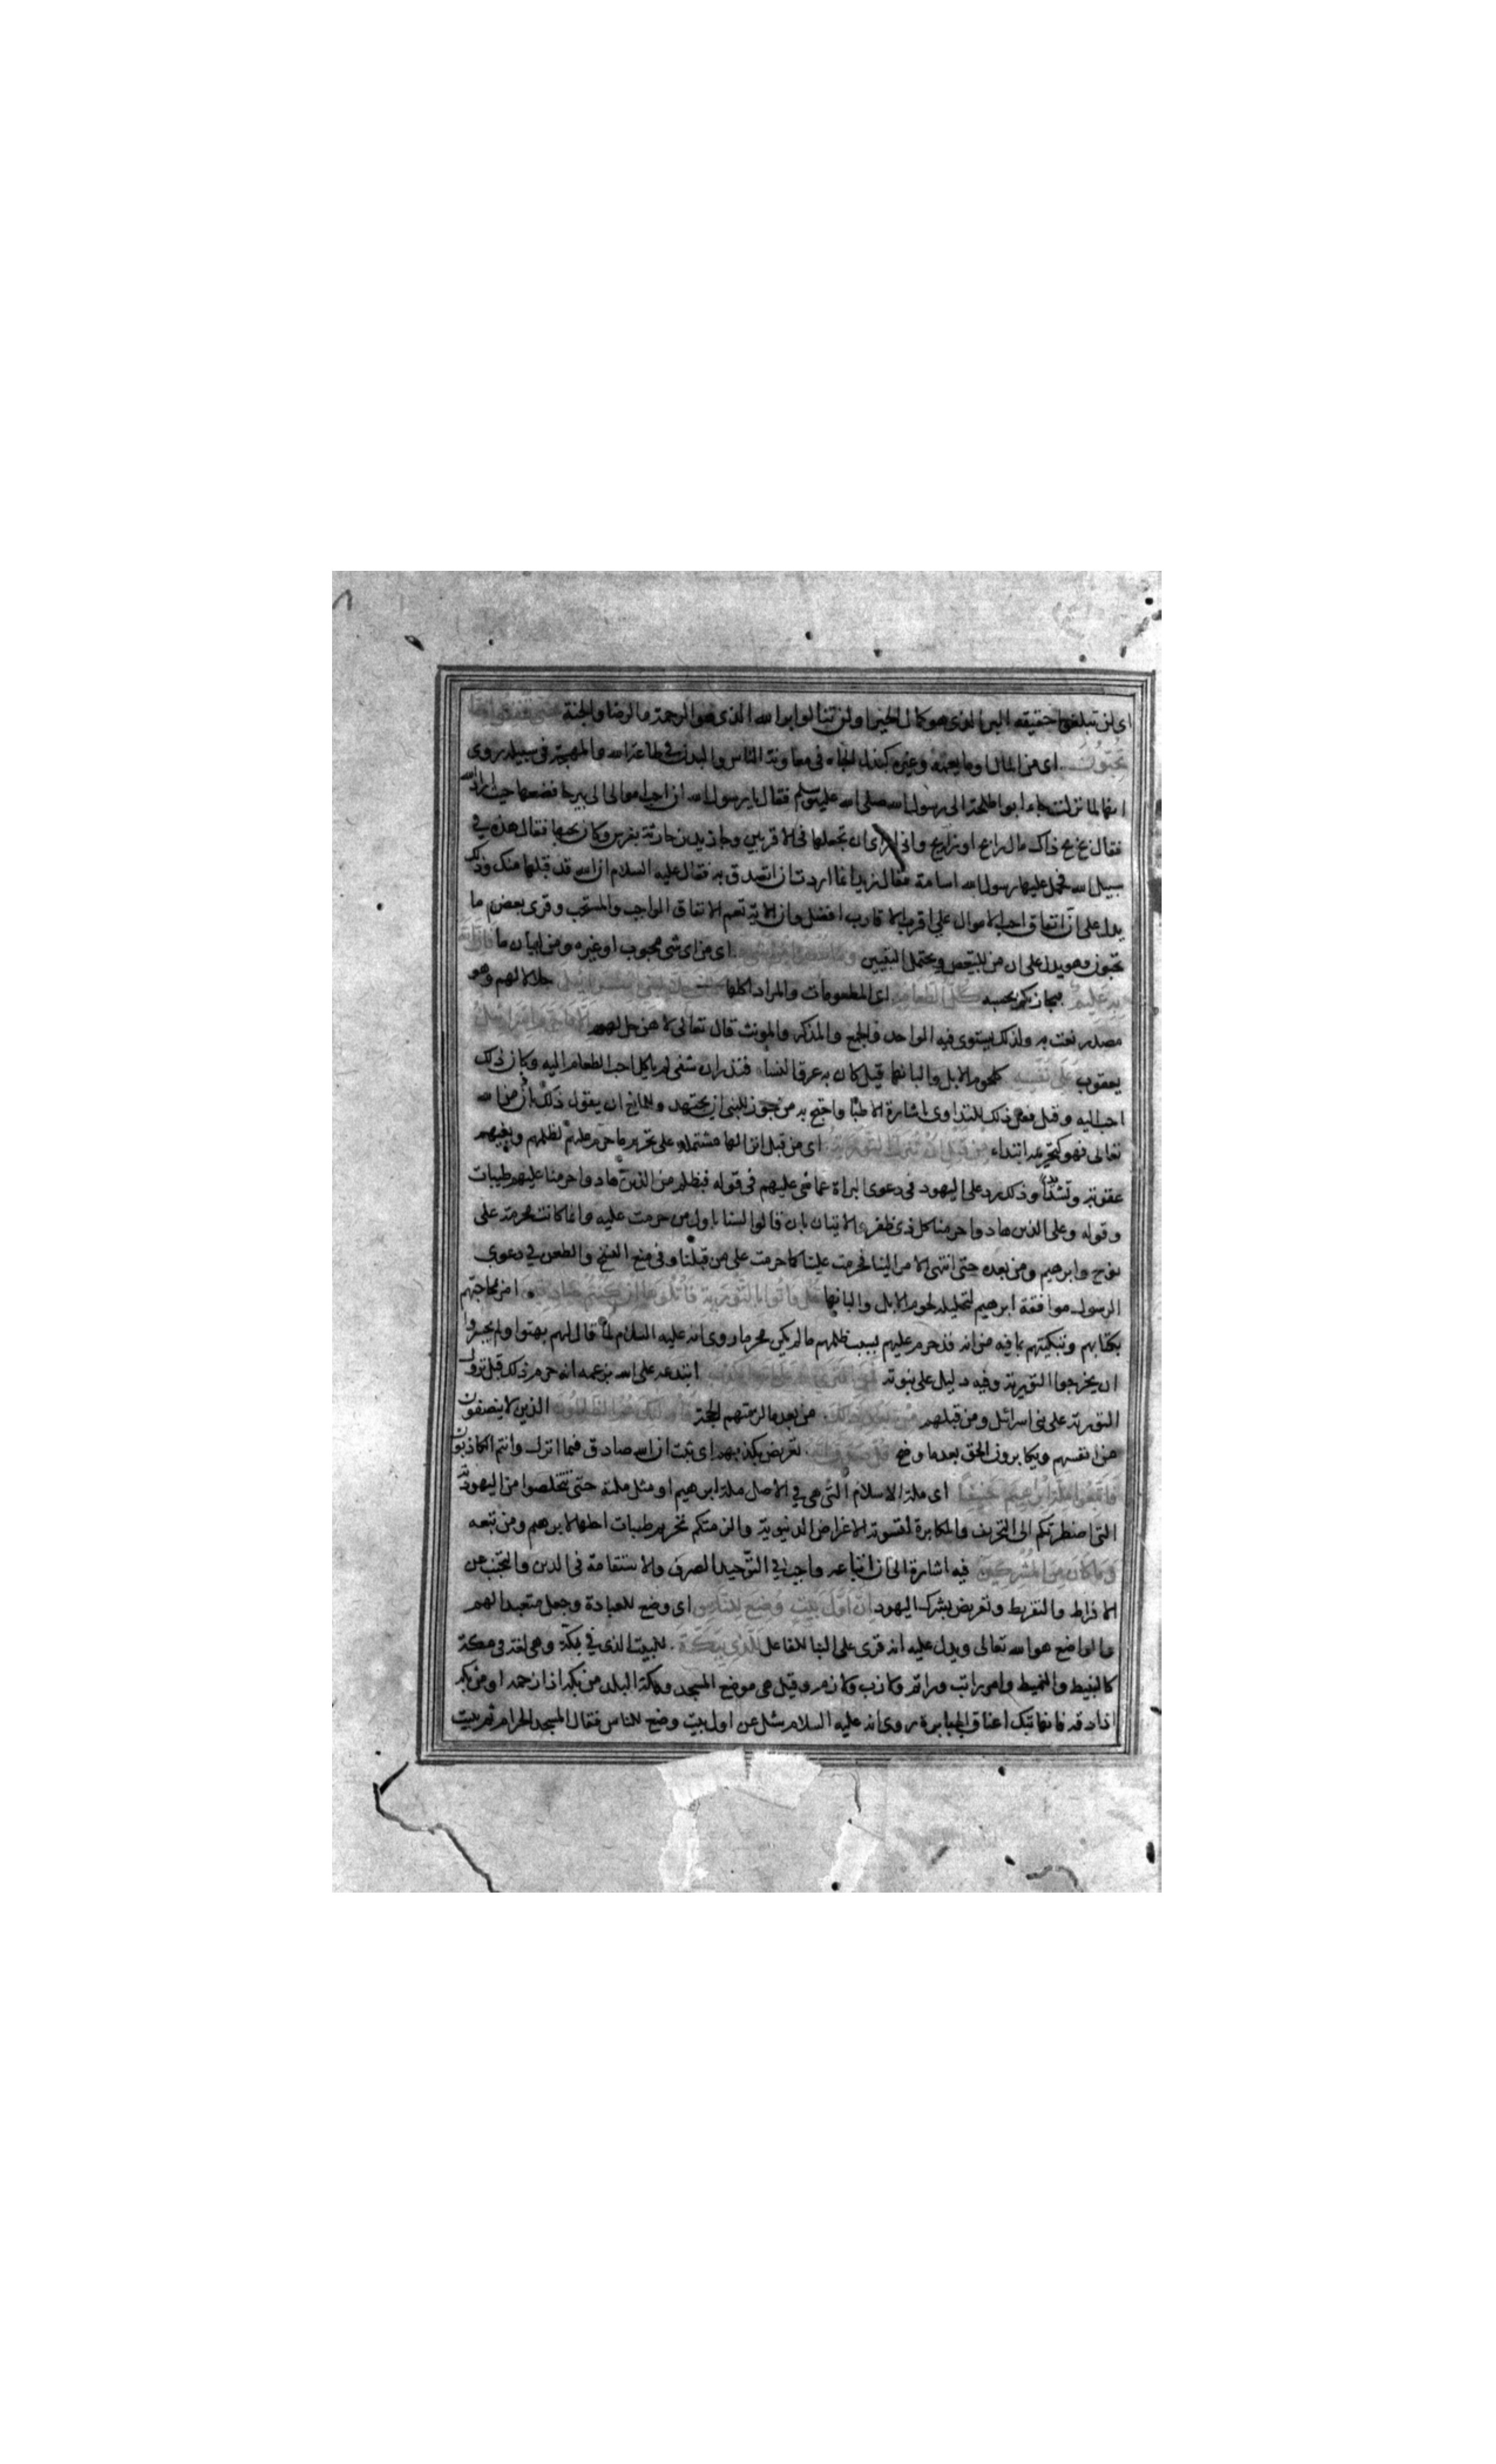 اى لن تبلغوا حقيقة البر الذى هو كمال الخير او لن تنالوا بر الله الذى هو الرحمة والرضا والجنة حتى تنفقوا مما
تحبون اى من المال او ما يعمه وغيره كبذل الجاه فى معاونة الناس والبدن فى طاعة الله والمهجة فى سبيله روى
انها لما نزلت جاء ابو طلحة الى رسول الله صلى الله عليه وسلم فقال يا رسول الله ان احب اموالى الى بيرحا فضعها حيث اراك الله
فقال بخ بخ ذاك مال رابح او رايح وانى ارى ان تجعلها فى الاقربين وجا زيد بن حارثة بفرس وكان يحبها فقال هذه فى
سبيل الله فحمل عليها رسول الله اسامة فقال زيد انما اردت ان اتصدق به فقال عليه السلام ان الله قد قبلها منك وذلك
يدل على ان انفاق احب الاموال على اقرب الاقارب افضل وان الاية تعم الانفاق الواجب والمستحب وقرى بعض ما
تحبون وهو يدل على ان من للتبعيض ويحتمل التبيين وما تنفقوا من شىء اى من اى شى محبوب او غيره ومن لبيان ما فان الله
به عليم فيجازيكم بحسبه كل الطعام اى المطعومات والمراد اكلها كان حلا لبنى اسرائيل حلالا لهم وهو
مصدر نعت به ولذلك يستوى فيه الواحد والجمع والمذكر والمونث قال تعالى لا هن حل لهم الا ما حرم اسرائيل
يعقوب على نفسه كلحوم الابل والبانها قيل كان به عرق النساء فنذر ان شفى لم ياكل احب الطعام اليه وكان ذلك
احب اليه وقيل فعل ذلك للتداوى باشارة الاطبا واحتج به من جوز للنبى ان يجتهد وللمانع ان يقول ذلك باذن من الله
تعالى فهو كتحريمه ابتداء من قبل ان تنزل التورية اى من قبل انزالها مشتملة على تحريم ما حرم عليهم لظلمهم وبغيهم
عقوبة وتشديدا وذلك رد على اليهود فى دعوى البراة عما نعى عليهم فى قوله فبظلم من الذين هادوا حرمنا عليهم طيبات
وقوله وعلى الذين هادوا حرمنا كل ذى ظفر الايتان بان قالوا لسنا باول من حرمت عليه وانما كانت محرمة على
نوح وابرهيم ومن بعده حتى انتهى الامر الينا فحرمت علينا كما حرمت على من قبلنا وفى منع النسخ والطعن فى دعوى
الرسول موافقة ابرهيم لتحليله لحوم الابل والبانها قل فاتوا بالتورية فاتلوها ان كنتم صادقين امر بمحاجتهم
بكتابهم وتبكيتهم بما فيه من انه قد حرم عليهم بسبب ظلمهم ما لم يكن محرما روى انه عليه السلام لما قال لهم بهتوا ولم يجسروا
ان يخرجوا التورية وفيه دليل على نبوته فمن افترى على الله الكذب ابتدعه على الله بزعمه انه حرم ذلك قبل نزول
التورية على بنى اسرائل ومن قبلهم من بعد ذلك من بعد ما لزمتهم الحجة فاولئك هم الظالمون الذين لا ينصفون
من انفسهم ويكابرون الحق بعد ما وضح قل صدق الله تعريض بكذبهم اى ثبت ان الله صادق فيما انزل وانتم الكاذبون
فاتبعوا ملة ابرهيم حنيفا اى ملة الاسلام التى هى فى الاصل ملة ابرهيم او مثل ملته حتى تتخلصوا من اليهودية
التى اضطرتكم الى التحريف والمكابرة لتسوية الاغراض الدنيوية والزمتكم تحريم طيبات احلها لابرهيم ومن تبعه
وما كان من المشركين فيه اشارة الى ان اتباعه واجب فى التوحيد الصرف والاستقامة فى الدين والتجنب عن
الافراط والتفريط وتعريض بشرك اليهود ان اول بيت وضع للناس اى وضع للعبادة وجعل متعبدا لهم
والواضع هو الله تعالى ويدل عليه انه قرى على البنا للفاعل للذى ببكة للبيت الذى فى بكة وهى لغة فى مكة
كالنبيط والنميط وامر راتب وراتم ولازب ولازم وقيل هى موضع المسجد ومكة البلد من بكه اذا زحمه او من بكه
اذا دقه فانها تبك اعناق الجبابرة روى انه عليه السلام سئل عن اول بيت وضع للناس فقال المسجد الحرام ثم بيت